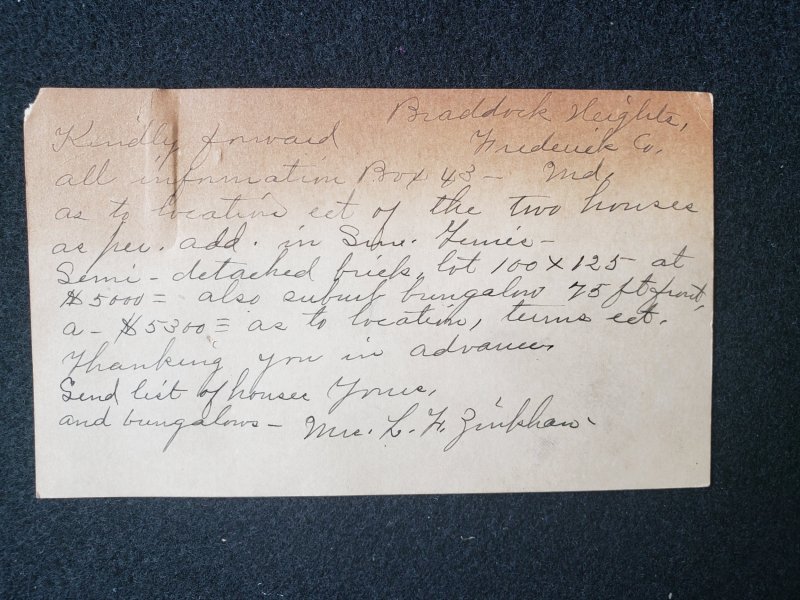 Braddock Heights,
Kindly forward Frederick Co.
all information Box 43 - Md.
as to location ect of the two houses
as per. add. in Sun.
Semi-detached brick, lot 100 x 125 at
$5000 = also suburb bungalow 75 ft front,
a - $5300 = as to location, terms ect.
Thanking you in advance,
Send list of houses Yours,
and bungalows - Mrs. L. F. Zinkhan.